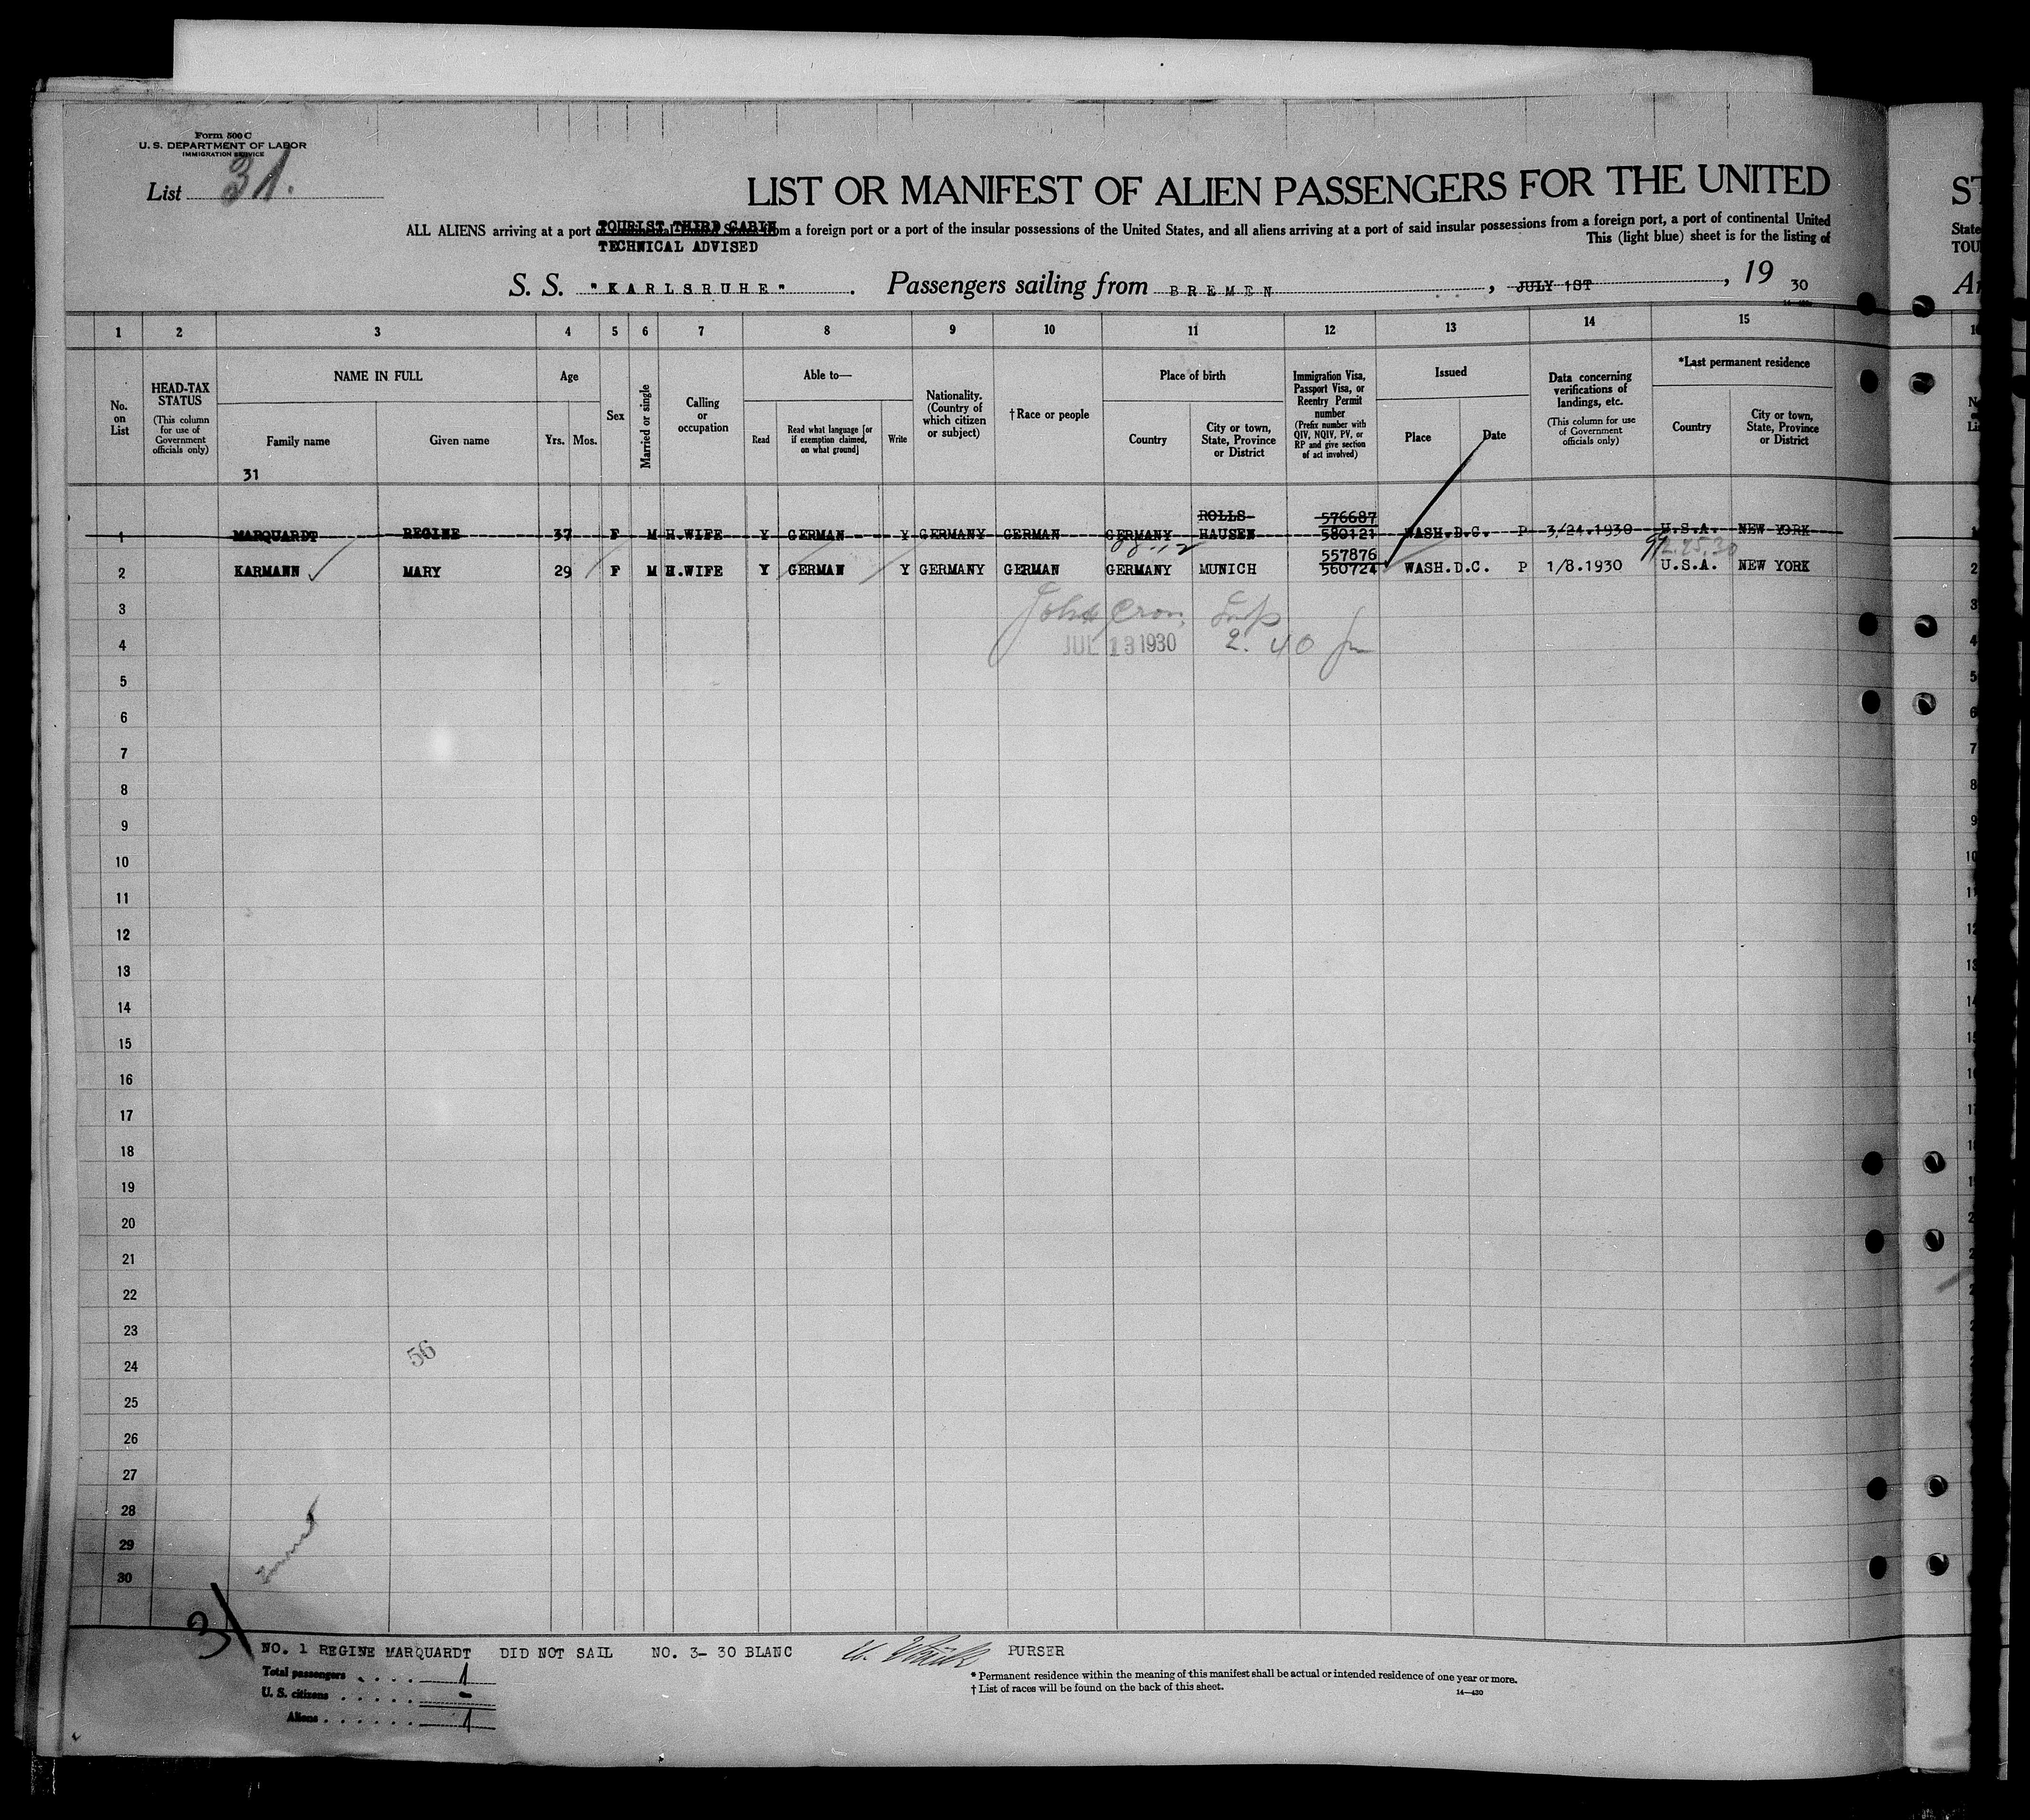 Form 500 C
U. S. DEPARTMENT OF LABOR
IMMIGRATION SERVICE
List 31.
LIST OR MANIFEST OF ALIEN PASSENGERS FOR THE UNITED
ST
TOURIST THIRD CABIN
ALL ALIENS arriving at a port of continental United States from a foreign port or a port of the insular possessions of the United States, and all aliens arriving at a port of said insular possessions from a foreign port, a port of continental United
State
TECHNICAL ADVISED
This (light blue) sheet is for the listing of
TOU
S. S. "KARLSRUHE". Passengers sailing from BREMEN, JULY 1ST, 19 30
1 2 3 4 5 6 7 8 9 10 11 12 13 14 15
No. on List
HEAD-TAX STATUS
(This column for use of Government officials only)
NAME IN FULL
Family name
Given name
31
Age
Yrs. Mos.
Sex
Married or single
Calling or occupation
Able to—
Read
Read what language [or if exemption claimed, on what ground]
Write
Nationality. (Country of which citizen or subject)
†Race or people
Place of birth
Country
City or town, State, Province or District
Immigration Visa, Passport Visa, or Reentry Permit number
(Prefix number with QIV, NQIV, PV, or RP and give section of act involved)
Issued
Place
Date
Data concerning verifications of landings, etc.
(This column for use of Government officials only)
*Last permanent residence
Country
City or town, State, Province or District
ROLLS- 576687
1 MARQUARDT REGINE 37 F M H.WIFE Y GERMAN Y GERMANY GERMAN GERMANY HAUSEN 580121 WASH.D.C. P 3/24.1930 U.S.A. NEW YORK
557876
2 KARMANN MARY 29 F M H.WIFE Y GERMAN Y GERMANY GERMAN GERMANY MUNICH 560724 WASH.D.C. P 1/8.1930 U.S.A. NEW YORK
3
John Insp
4 JUL 13 1930 2. 40 pm
5
6
7
8
9
10
11
12
13
14
15
16
17
18
19
20
21
22
23
24 56
25
26
27
28
29
30
31
NO. 1 REGINE MARQUARDT DID NOT SAIL NO. 3- 30 BLANC PURSER
Total passengers . . . . 1
U. S. citizens . . . . . -
Aliens . . . . . . 1
* Permanent residence within the meaning of this manifest shall be actual or intended residence of one year or more.
† List of races will be found on the back of this sheet.
14—430